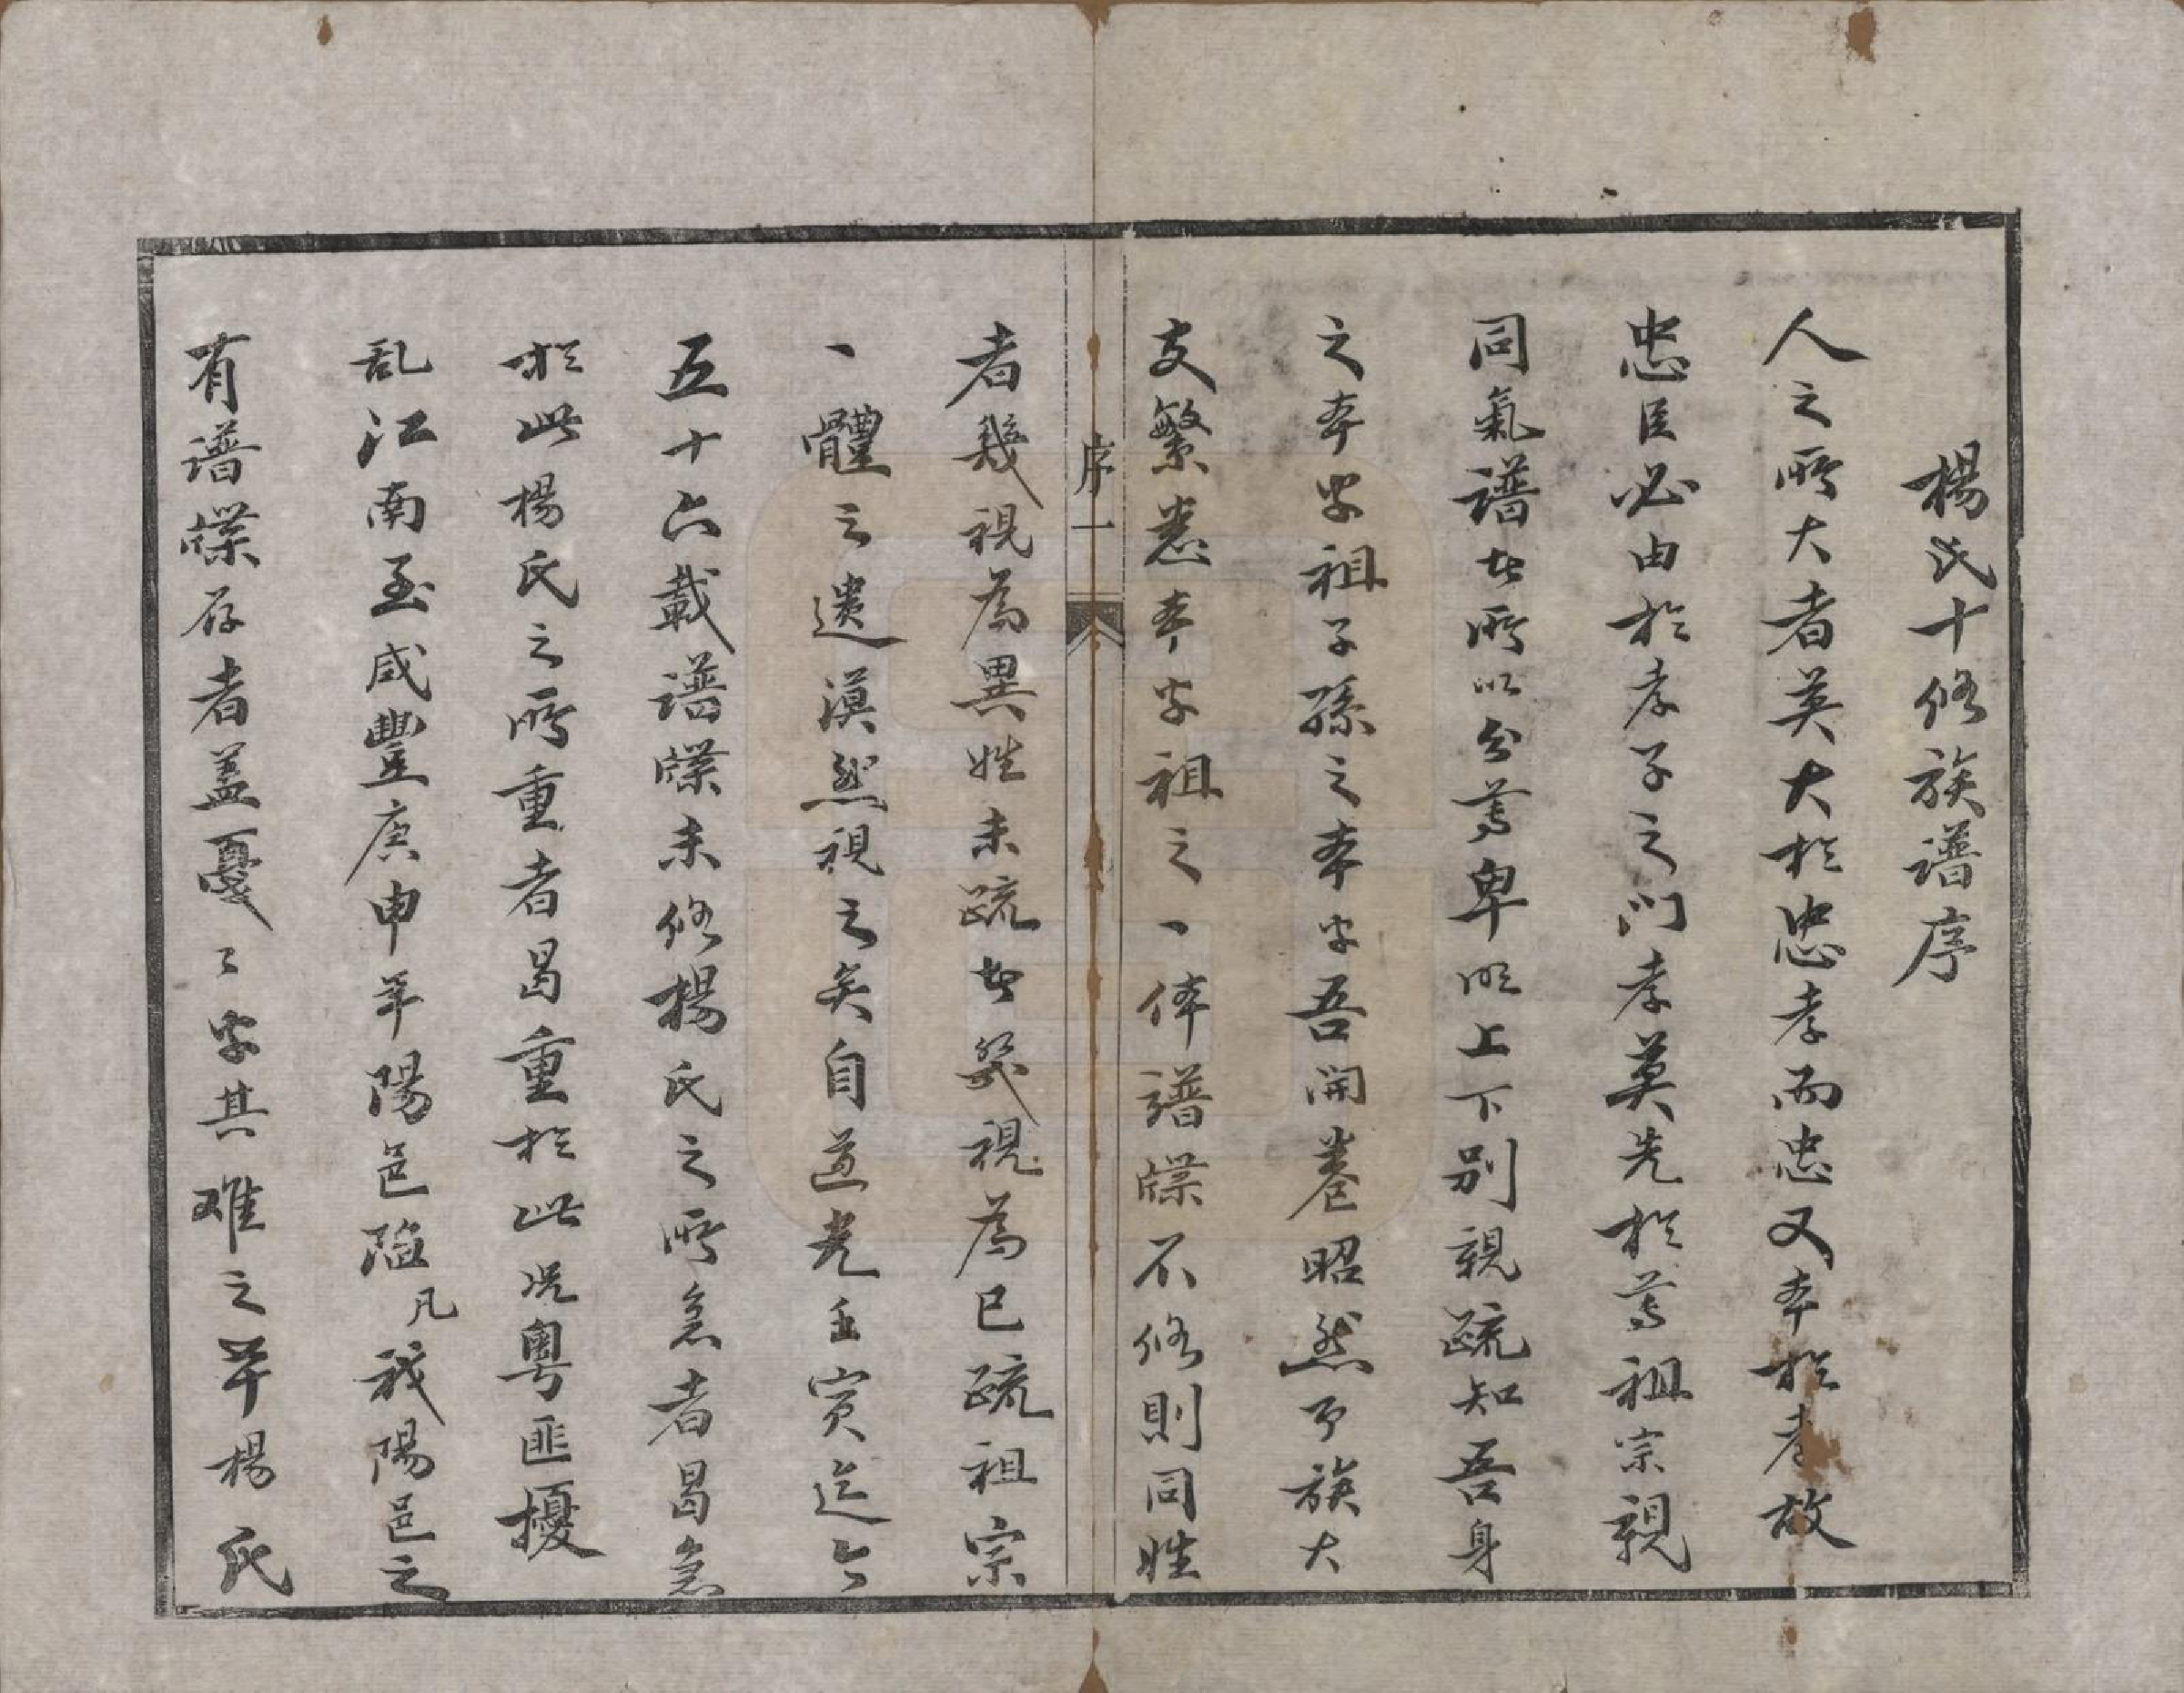 楊氏十修族譜序
人之所大者莫大於忠孝而忠又本於孝故
忠臣必由於孝子之门孝莫先於尊祖宗親
同氣譜者所以分尊卑明上下别親疏知吾身
之本乎祖子孫之本乎吾開卷昭然予族大
支繁悉本乎祖之一体譜牒不修則同姓
序一
者幾視為異姓未疏者幾視為已疏祖宗
一體之遗漠然視之矣自道光壬寅迄今
五十六載譜牒未修楊氏之所急者曷急
於此楊氏之所重者曷重於此况粤匪擾
乱江南至咸豐庚申年陽邑陷凡我陽邑之
有谱牒存者盖戞戞乎其难之平楊氏